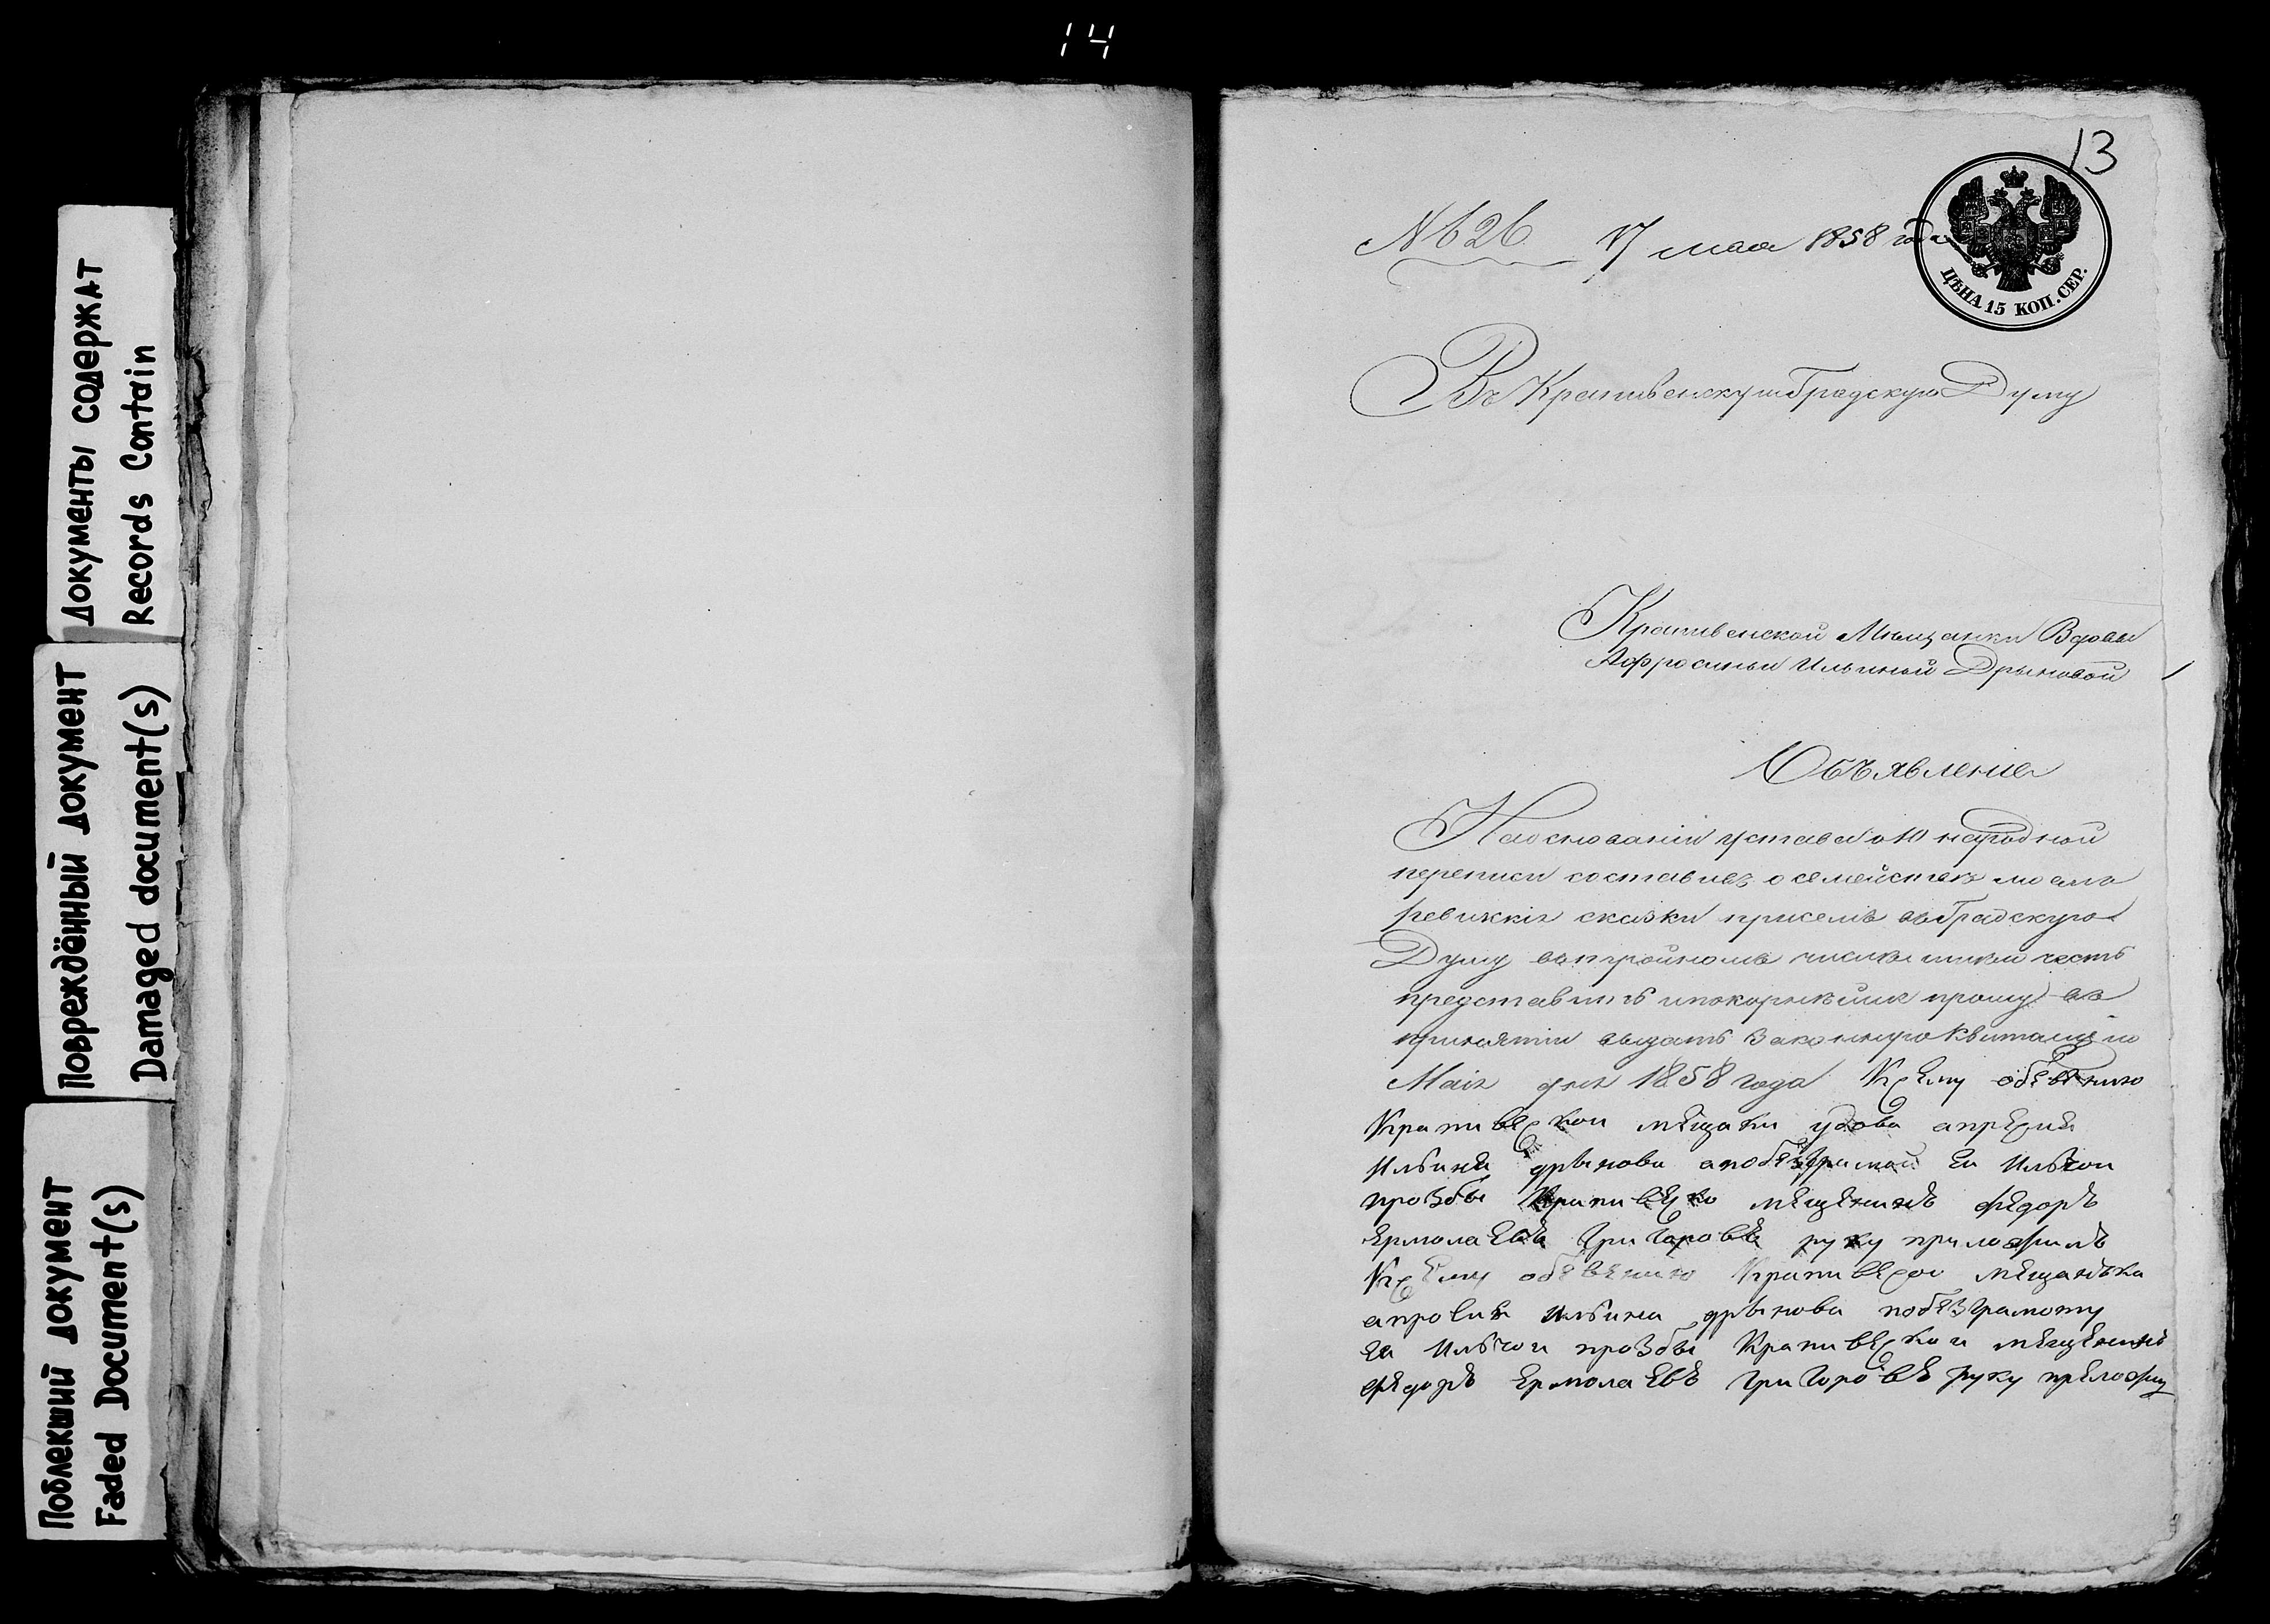 14
Документы содержат
Records Contain
Повреждённый документ
Damaged document(s)
Поблекший документ
Faded Document(s)
13
№ 626. 17 мая 1858 года
ЦѢНА 15 КОП. СЕР.
Въ Крапивенскую Градскую Думу
Крапивенской Мѣщанки Вдовы
Афросиньи Ильиной Дрыновой
Объявление
На основаніи устава о 10 народной
переписи составивъ о семействѣ моемъ
ревижкія сказки присемъ въ Градскую
Думу въ тройномъ числѣ имѣю честь
представить и покорнѣйше прошу въ
принятіи выдать законную квитанцію
Маія дня 1858 года Ксему обевению
Крапивеской мещаки удова
Ильина дрынова ея Личои
прозбы Крапивеско мещенинъ федоръ
ермолаевъ Григоровъ руку приложилъ
Ксему обевению Крапивеской мещанька
апросия Ильина дрынова побезграмоту
ея Личои прозбы Крапивескои мещенинъ
федоръ ермолаевъ григоровъ руку преложи